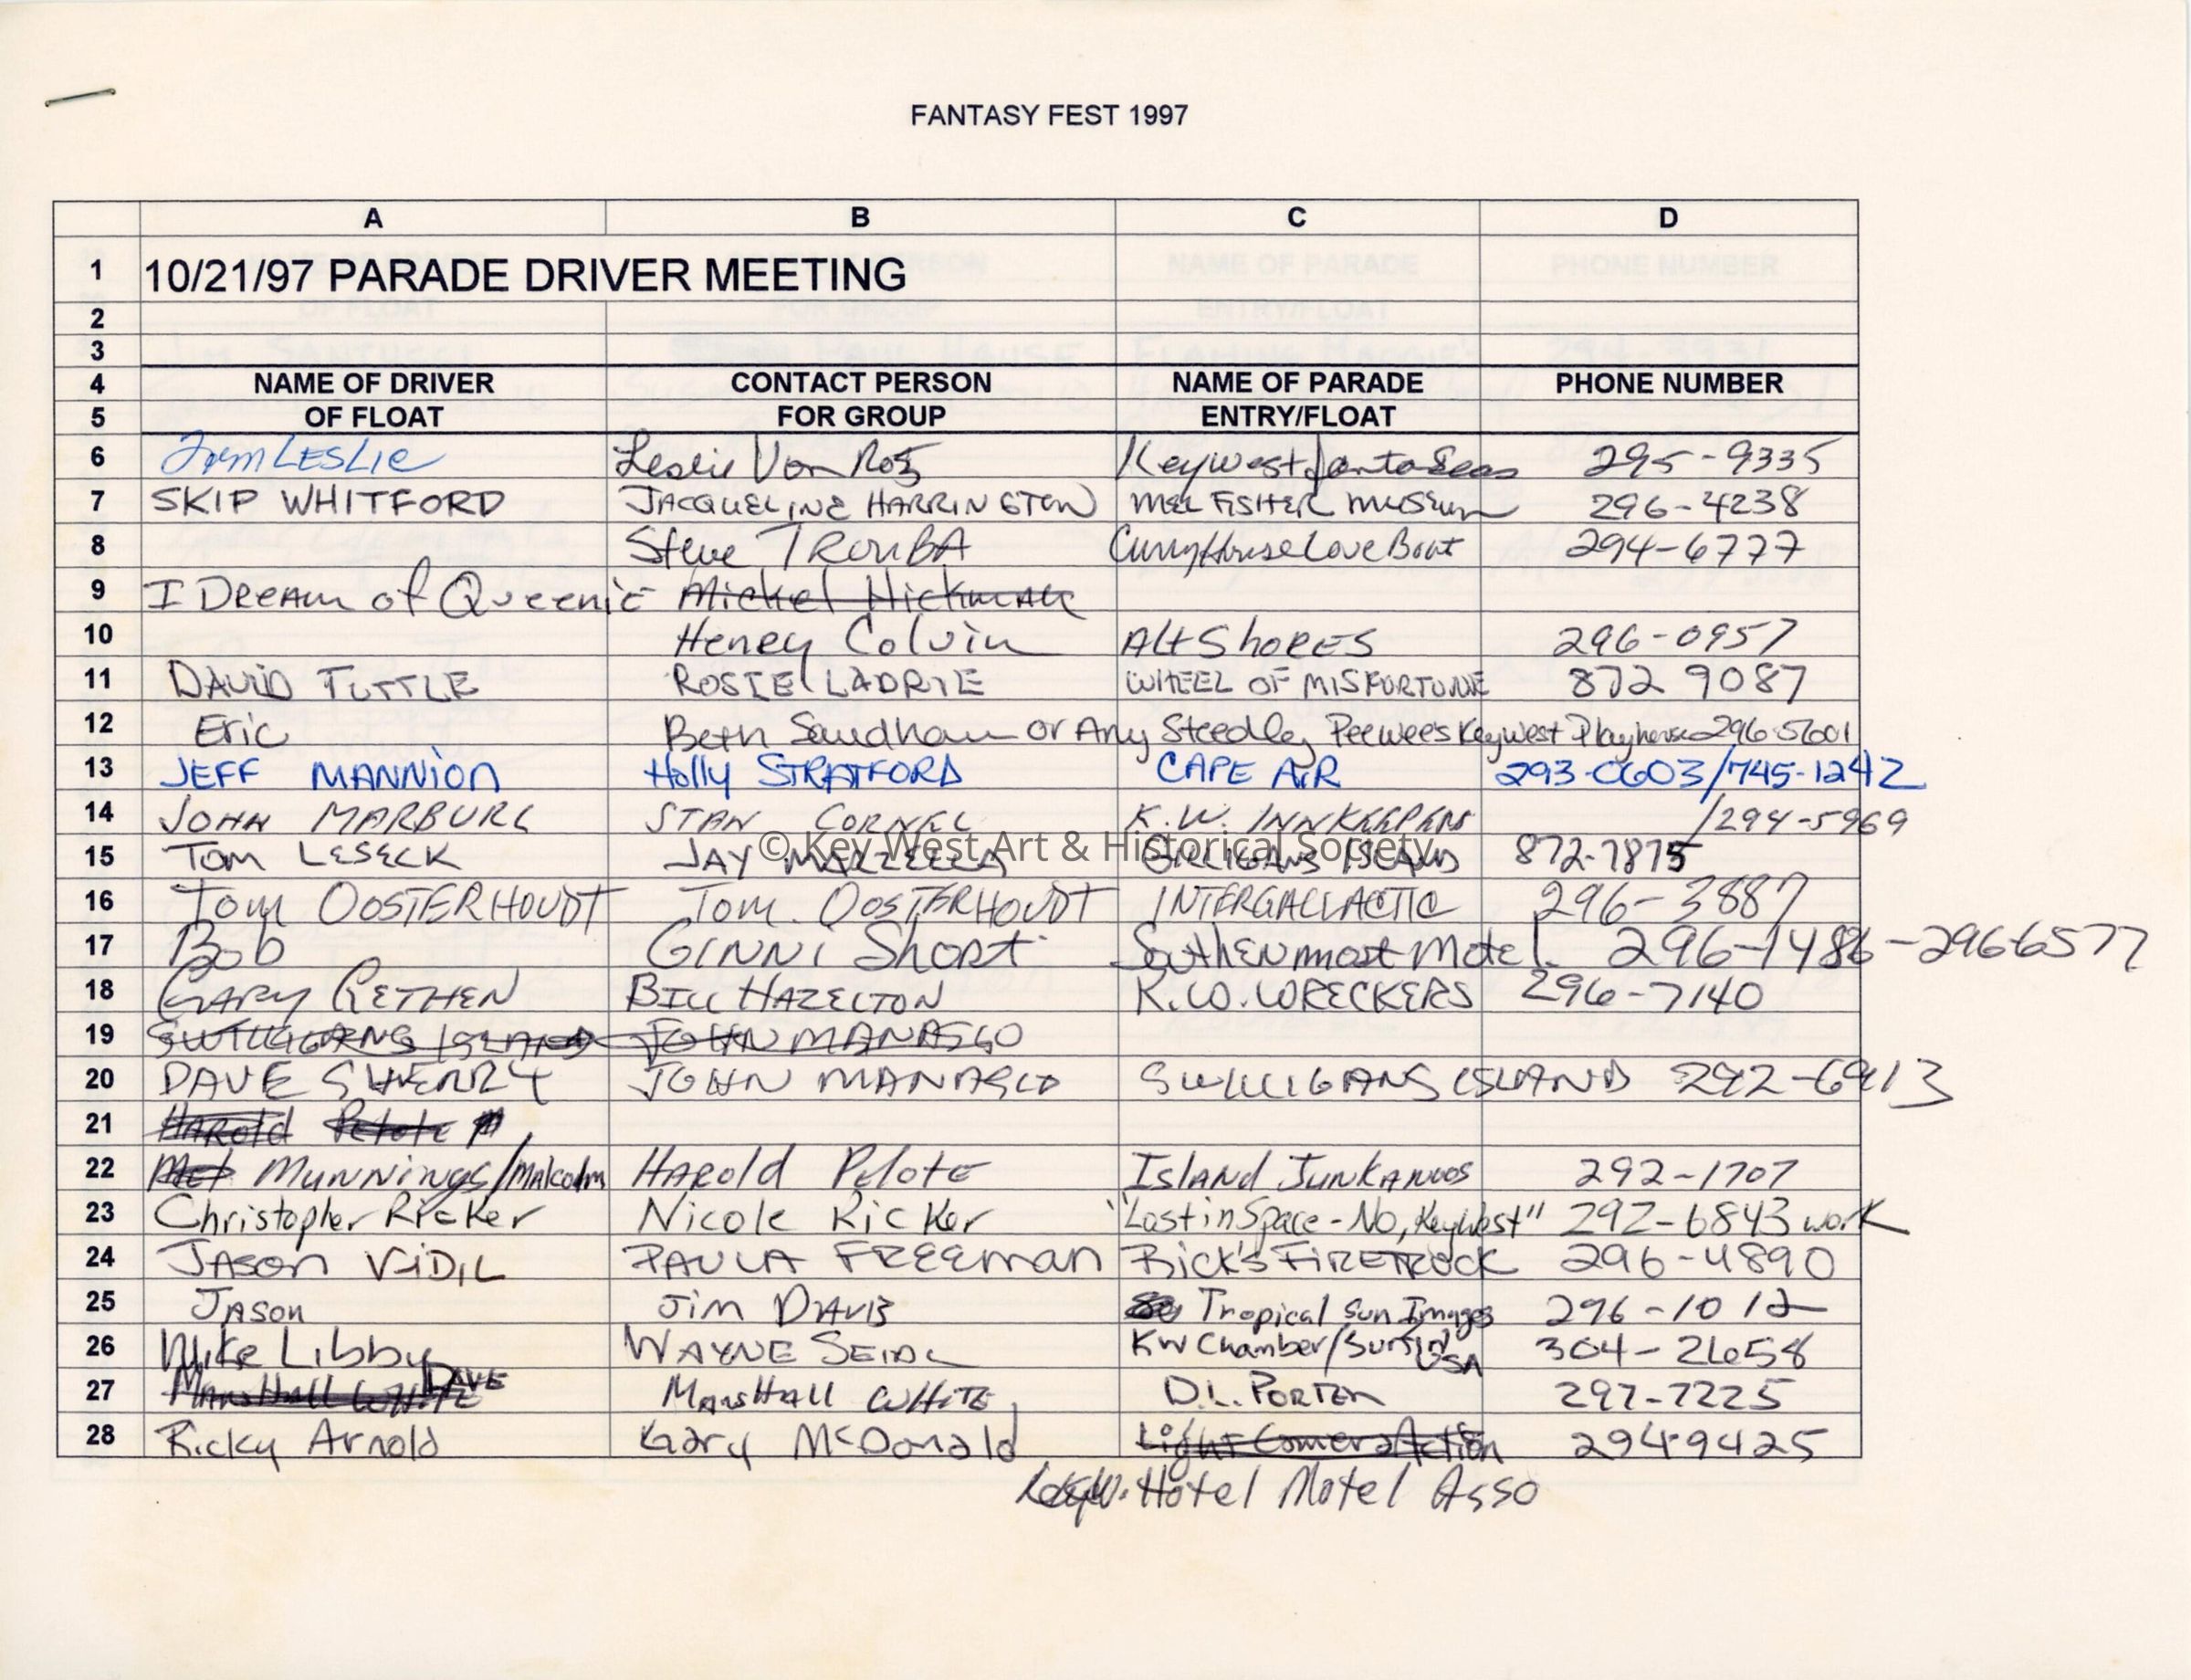 FANTASY FEST 1997
A B C D
1 10/21/97 PARADE DRIVER MEETING
2
3
4 NAME OF DRIVER CONTACT PERSON NAME OF PARADE PHONE NUMBER
5 OF FLOAT FOR GROUP ENTRY/FLOAT
6 LESLIE Leslie Von Key West 295-9335
7 SKIP WHITFORD JACQUELINE HARRINGTON MEL FISHER MUSEUM 296-4238
8 Steve TROUBA Curry House Love Boat 294-6777
9 I DREAM of Queenie Mickel Hickman
10 Henry Colvin Alt ShoRES 296-0957
11 DAVID TUTTLE ROSIE LADRIE WHEEL OF MISFORTUNE 872 9087
12 Eric Beth Sandham or Amy Steedley Peewee's Key West Playhouse 296-5601
13 JEFF MANNION Holly STRATFORD CAPE AIR 293-0603/745-1242
14 JOHN MARBURG STAN CORNEL K.W. INNKEEPERS /294-5969
© Key West Art & Historical Society
15 TOM LESECK JAY MAZZELLA GILLIGANS ISLAND 872-7875
16 Tom OOSTERHOUDT Tom. OOSTERHOUDT INTERGALLACTIC 296-3887
17 Bob GINNI Short Southenmost Motel. 296-1486-2966577
18 GARY GETHEN BILL HAZELTON K.W. WRECKERS 296-7140
19 SWILLIGANS ISLAND JOHN MANASCO
20 DAVE SHERRY JOHN MANASCO SWILLIGANS ISLAND 292-6913
21 HAROld Pelote
22 Mel Munnings/Malcolm HAROld Pelote Island Junkanoos 292-1707
23 Christopher Ricker Nicole Ricker "Lost in Space - No, Key West" 292-6843 work
24 JASON VIDIL PAULA FREEMAN RICK'S FIRETRUCK 296-4890
25 JASON Jim DAVIS Tropical Sun Images 296-1012
26 Mike Libby WAYNE SEIDL KW Chamber/Surfin' USA 304-2658
27 Marshall WHITE DAVE Marshall WHITE D.L. PORTER 297-7225
28 Ricky Arnold Gary McDonald Light Camera Action 294-9425
Hotel Motel Asso